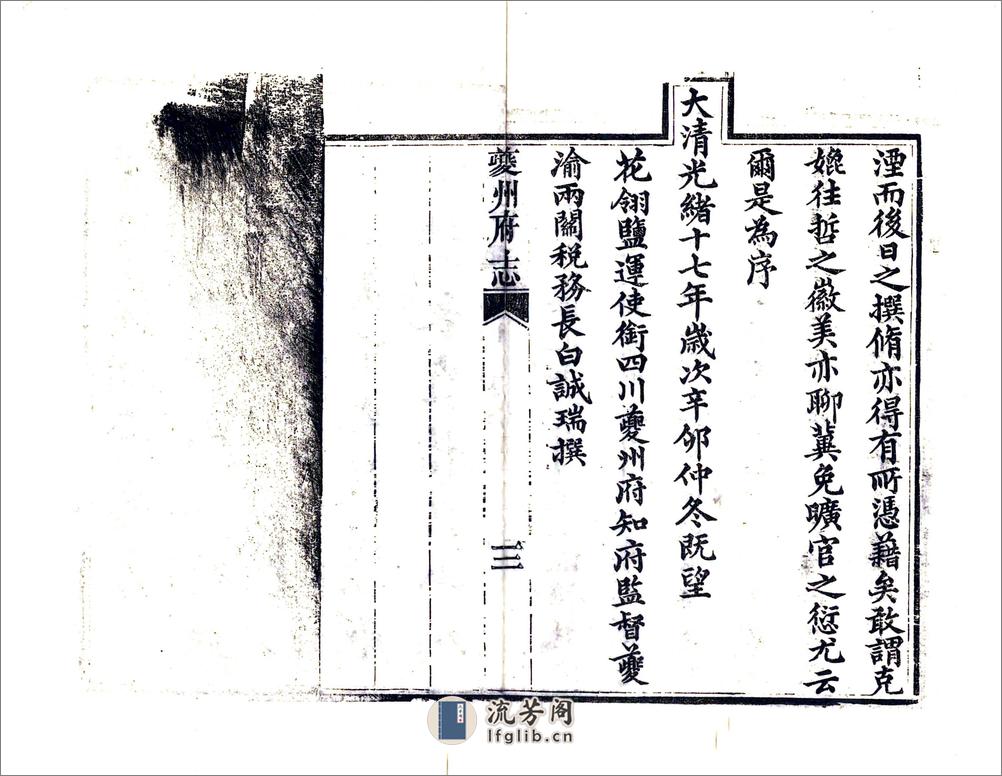 湮而後日之撰脩亦得有所憑藉矣敢謂克
媲往哲之徽美亦聊冀免曠官之愆尤云
爾是為序
大清光緒十七年歲次辛卯仲冬既望
花翎鹽運使銜四川夔州府知府監督夔
渝兩關稅務長白誠瑞撰
夔州府志
三
流芳阁
lfglib.cn